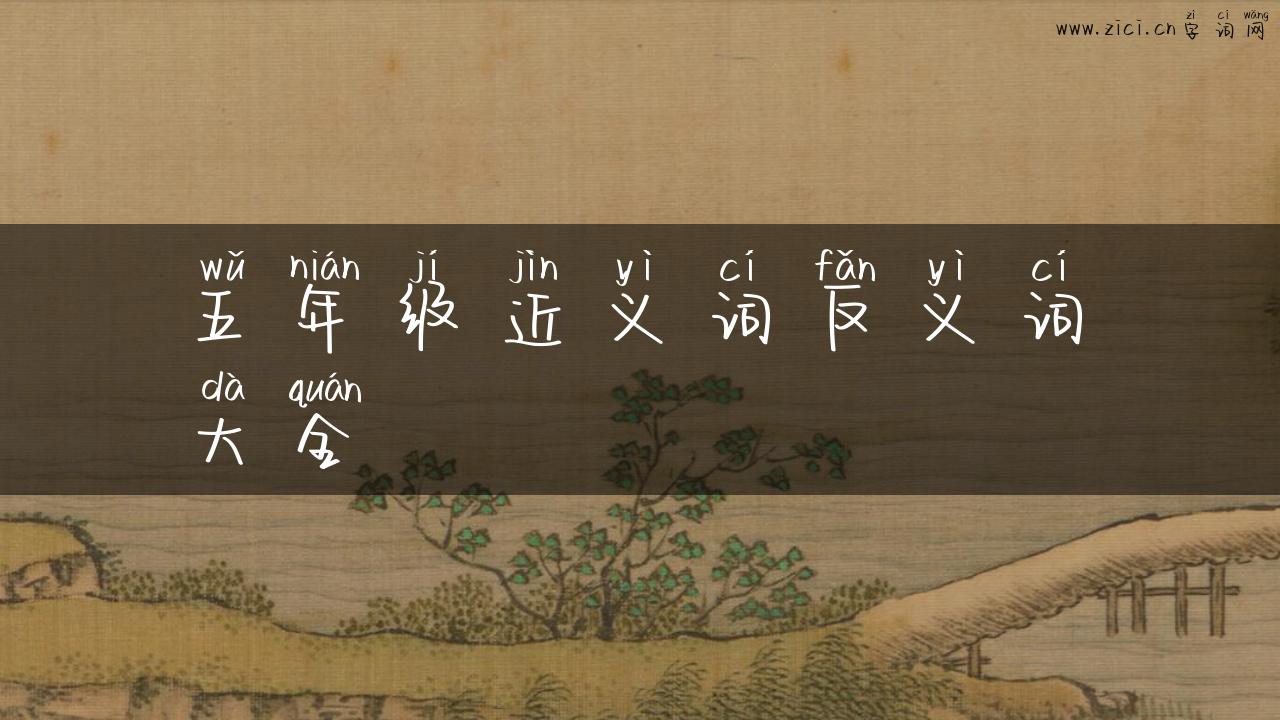 zì cí wǎng
www.zici.cn 字词网
wǔ nián jí jìn yì cí fǎn yì cí
五年级近义词反义词
dà quán
大全